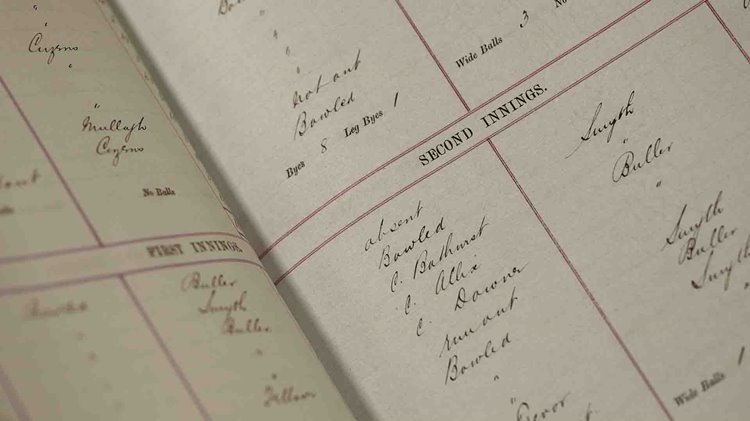 "
Cuzens
"
"
Mullagh
Cuzens
No Balls
FIRST INNINGS.
Buller
Smyth
Buller
"
"
"
"
not out
Bowled
Byes 8 Leg Byes 1
Wide Balls 3 No
SECOND INNINGS.
absent
Bowled
C. Bathurst
C. Allix
C. Downer
run out
Bowled
"
"
Smyth
"
Buller
"
Smyth
Buller
Smyth
Wide Balls 1